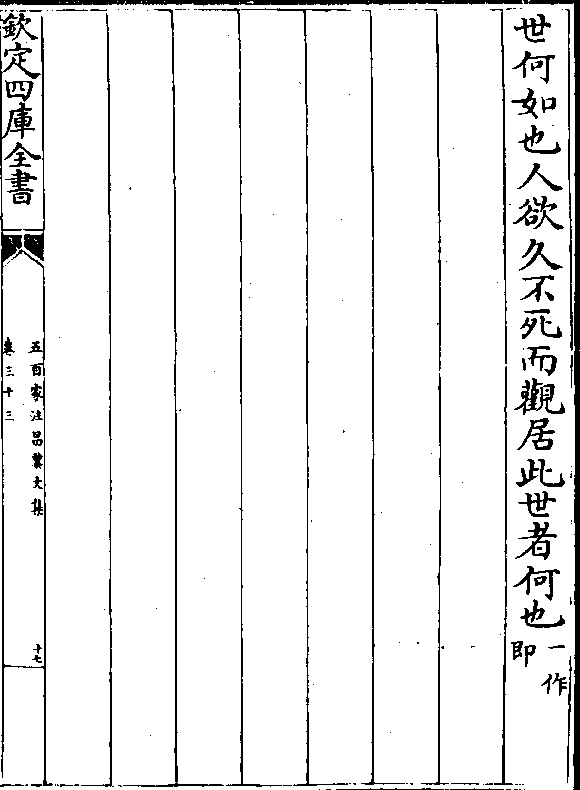 世何如也人欲久不死而觀居此世者何也一作即
欽定四庫全書
五百家注昌黎文集
卷三十三
十七